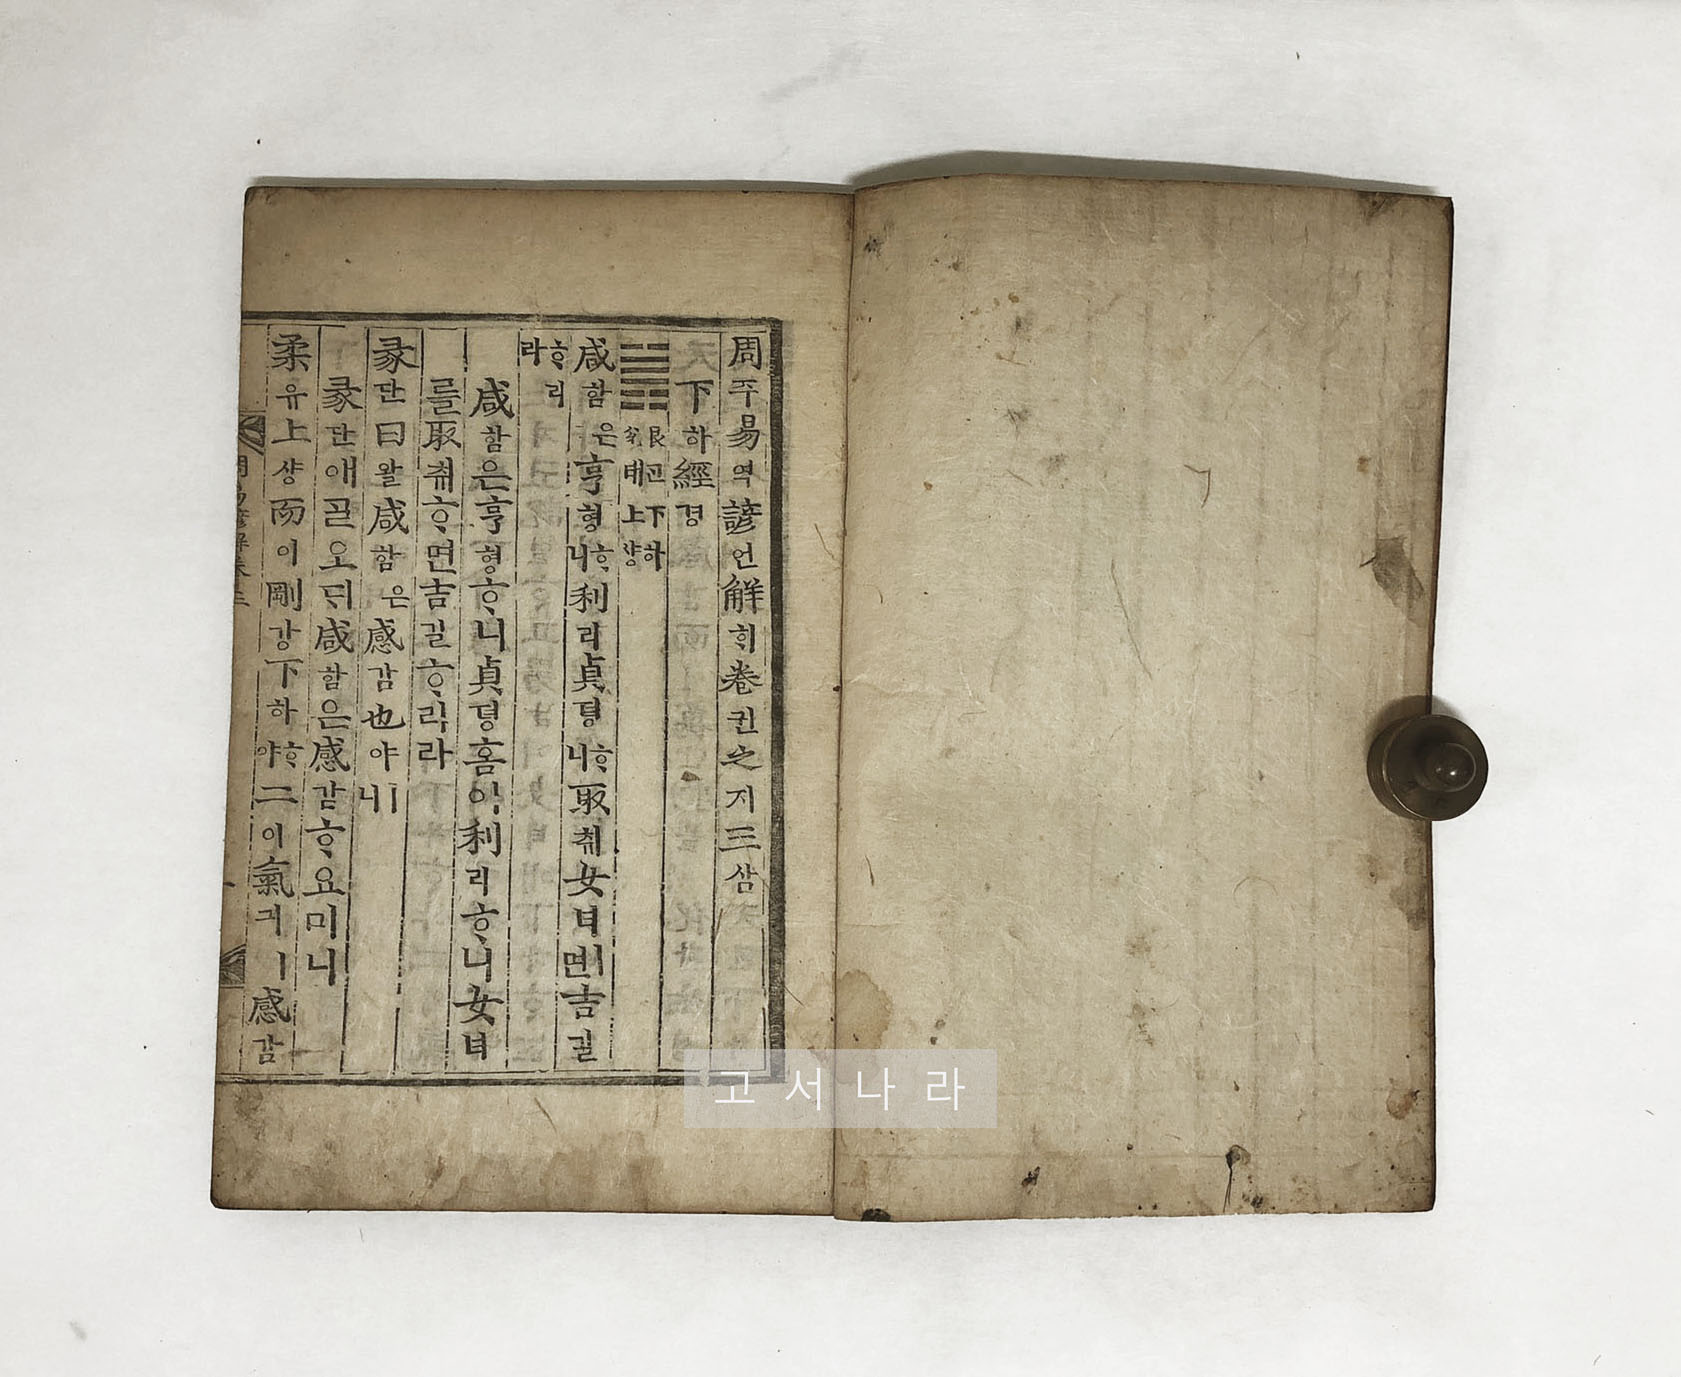 周쥬易역諺언解ᄒᆡ卷권之지三삼
下하經경
䷞艮간下하兌태上샹
咸함은亨형ᄒᆞ니利리貞뎡ᄒᆞ니取췌女녀ㅣ면吉길
ᄒᆞ리라
咸함은亨형ᄒᆞ니貞뎡홈이利리ᄒᆞ니女녀
를取췌ᄒᆞ면吉길ᄒᆞ리라
彖단曰왈咸함은感감也야ㅣ니
彖단애ᄀᆞᆯ오ᄃᆡ咸함은感감ᄒᆞ요미니
柔유上샹而이剛강下하ᄒᆞ야二이氣긔ㅣ感감
周易諺解卷三
고서나라